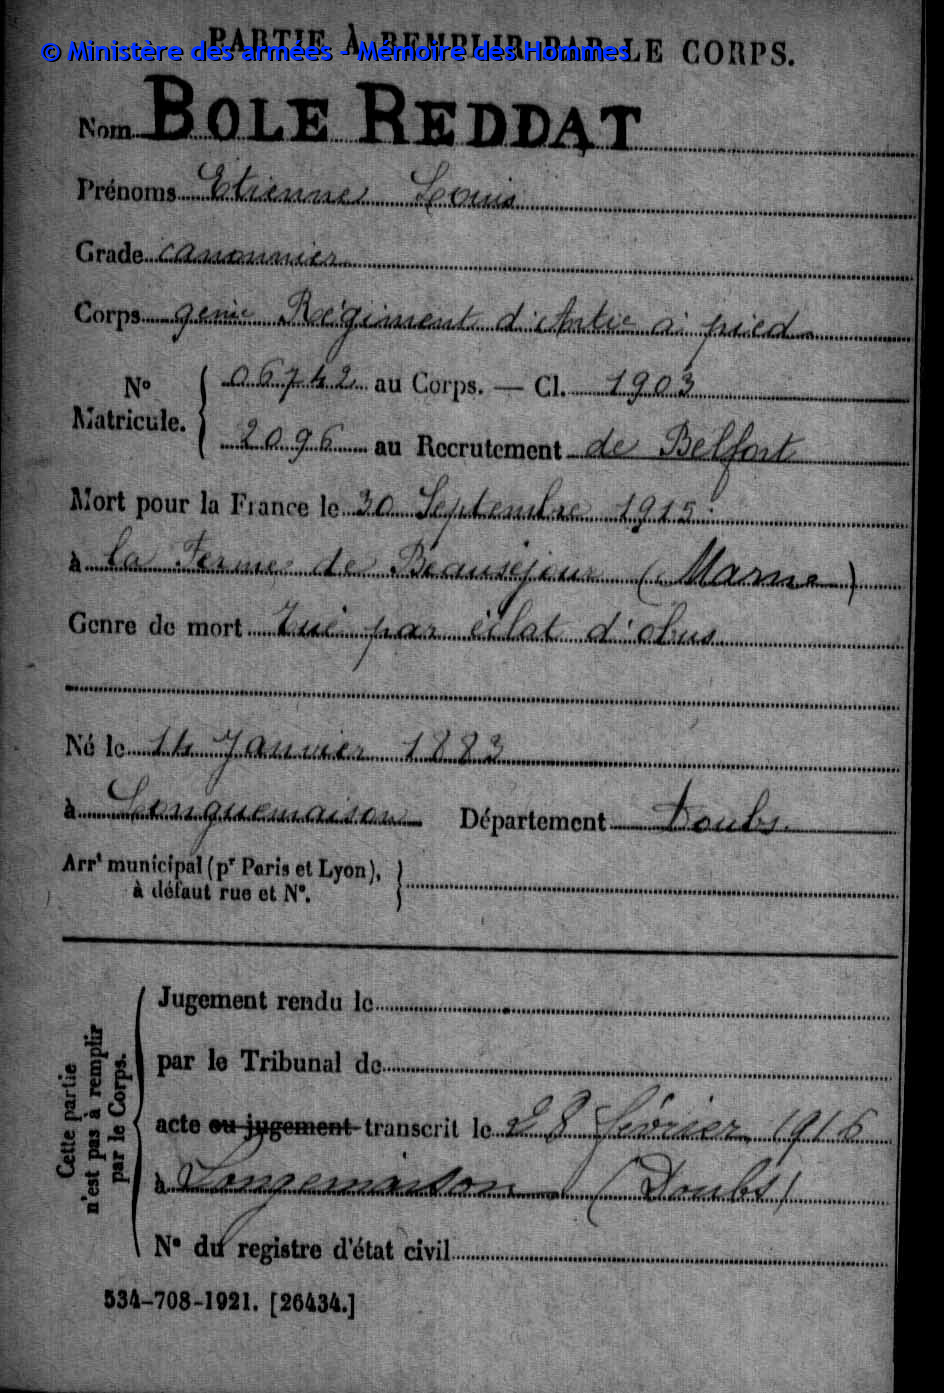 PARTIE À REMPLIR PAR LE CORPS.
© Ministère des armées - Mémoire des Hommes
Nom BOLE REDDAT
Prénoms Etienne Louis
Grade canonnier
Corps 9eme Régiment d'Artie à pied
No Matricule. { 06742 au Corps. — Cl. 1903
2096 au Recrutement de Belfort
Mort pour la France le 30 Septembre 1915
à la Ferme de Beauséjour (Marne)
Genre de mort Tué par éclat d'obus
Né le 14 Janvier 1883
à Longuemaison Département Doubs
Arrt municipal (pr Paris et Lyon), à défaut rue et No. }
Cette partie n'est pas à remplir par le Corps.
Jugement rendu le
par le Tribunal de
acte ou jugement transcrit le 28 février 1916
à Longemaison (Doubs)
No du registre d'état civil
534-708-1921. [26434.]